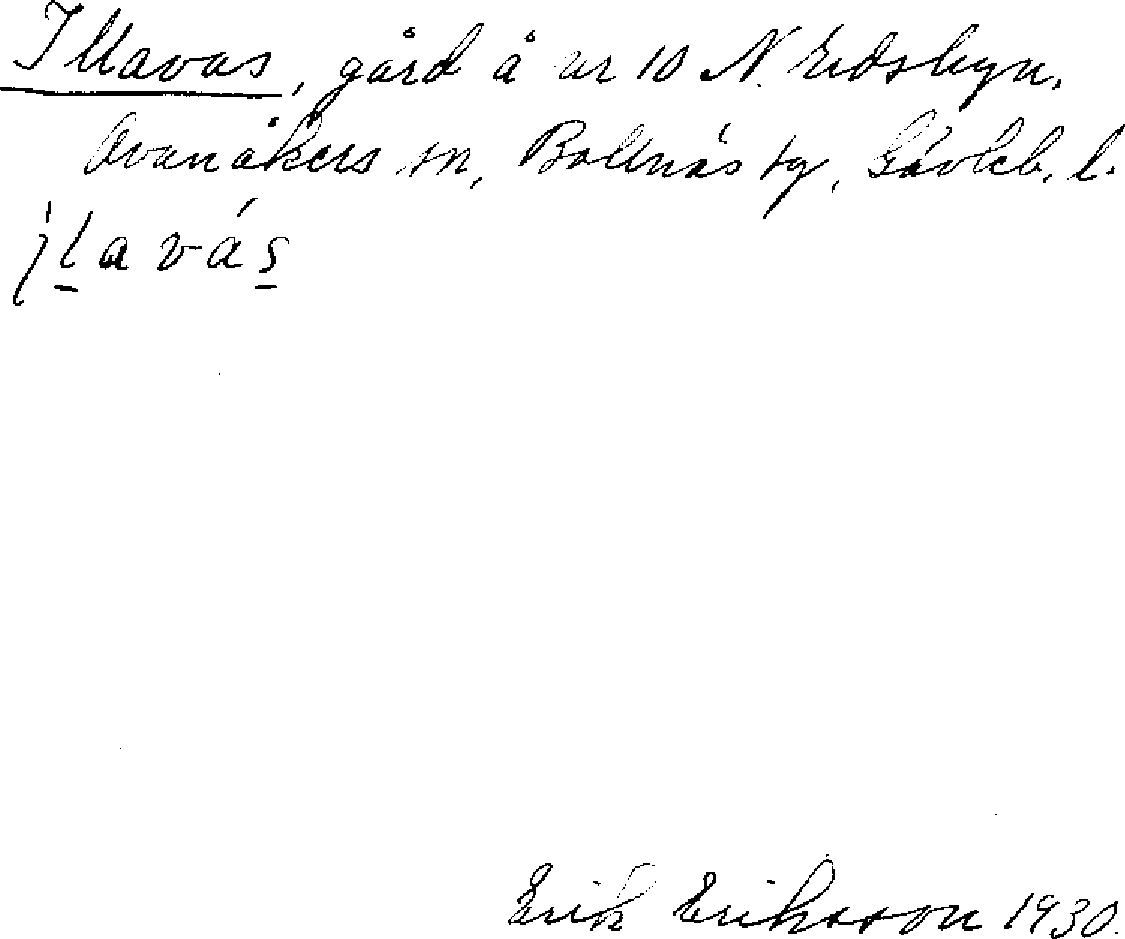 Illavas, gård å nr 10 N. Edsbyn.
Ovanåkers sn, Bollnäs tg, Gävleb. l.
Erik Eriksson 1930.